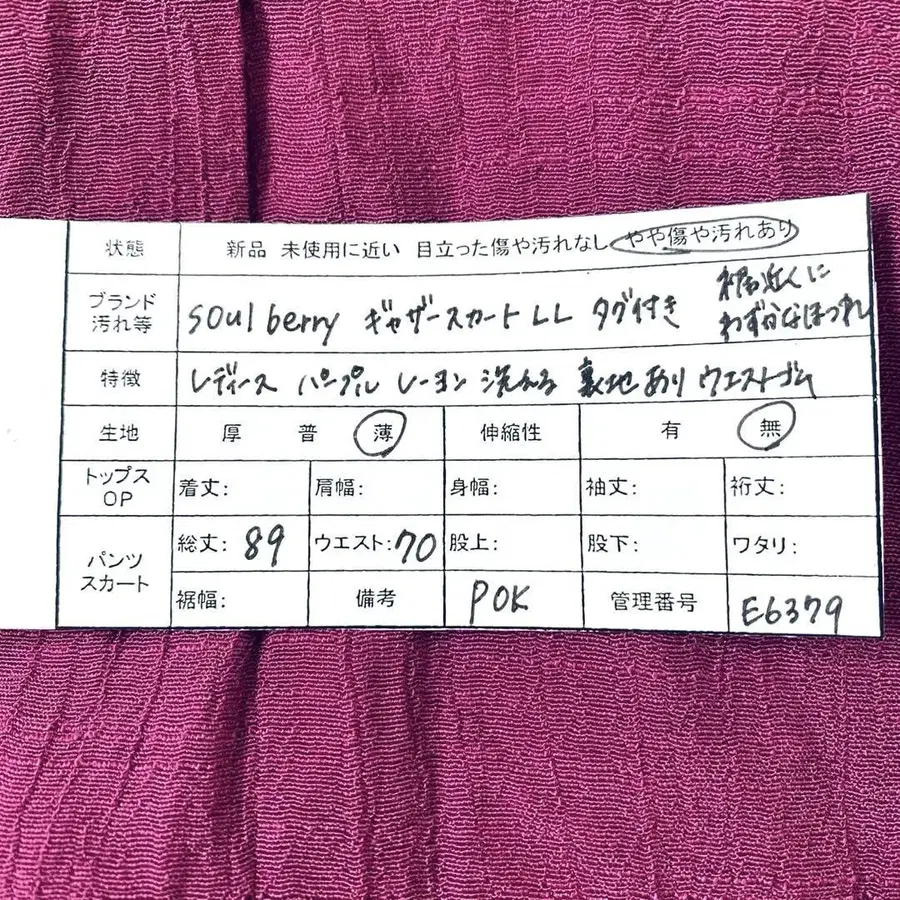 状態 新品 未使用に近い 目立った傷や汚れなし やや傷や汚れあり
ブランド 汚れ等 soulberry ギャザースカート LL タグ付き 裾近くに
わずかなほつれ
特徴 レディース パープル レーヨン 洗える 裏地あり ウエストゴム
生地 厚 普 薄 伸縮性 有 無
トップス OP 着丈: 肩幅: 身幅: 袖丈: 裄丈:
パンツ スカート 総丈: 89 ウエスト: 70 股上: 股下: ワタリ:
裾幅: 備考 POK 管理番号 E6379